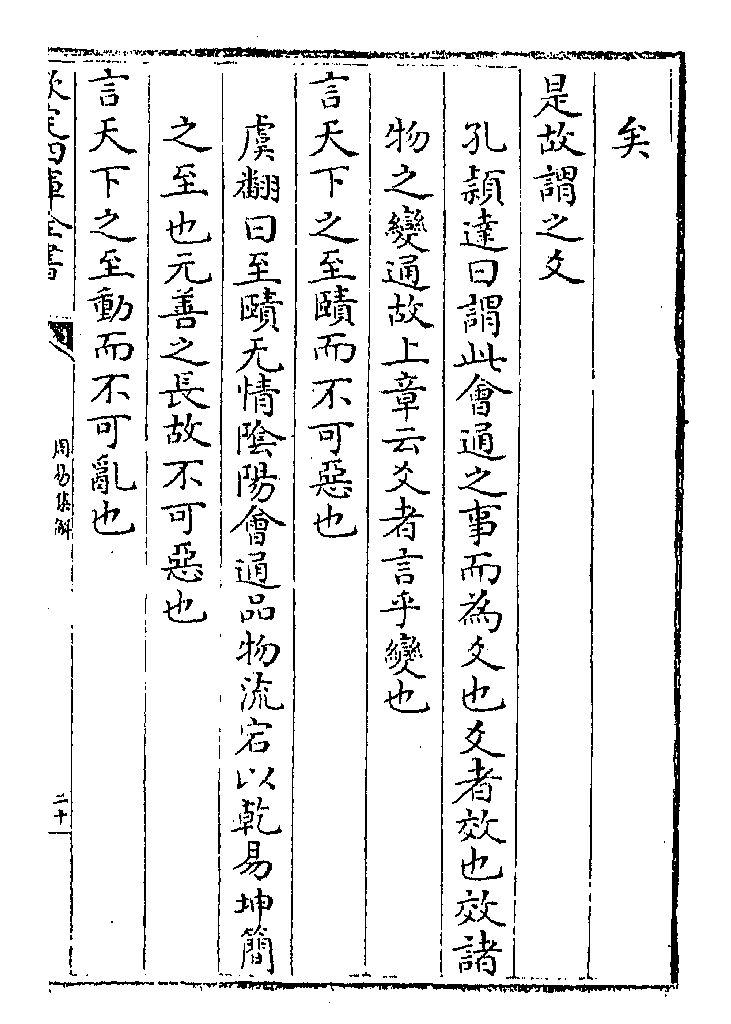 矣
是故謂之爻
孔穎達曰謂此會通之事而為爻也爻者效也效諸
物之變通故上章云爻者言乎變也
言天下之至賾而不可惡也
虞翻曰至賾无情陰陽會通品物流宕以乾易坤簡
之至也元善之長故不可惡也
言天下之至動而不可亂也
欽定四庫全書
周易集解
二十